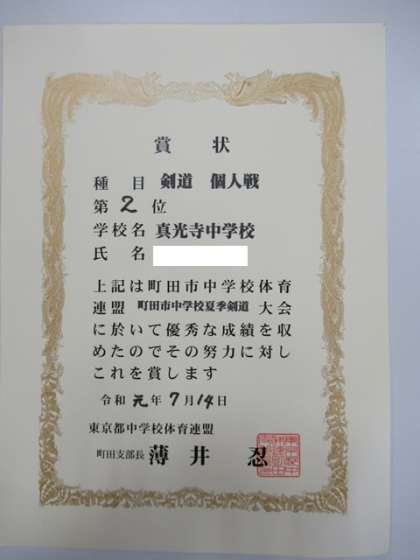 賞状
種目 剣道 個人戦
第2位
学校名 真光寺中学校
氏名
上記は町田市中学校体育
連盟 町田市中学校夏季剣道 大会
に於いて優秀な成績を収
めたのでその努力に対し
これを賞します
令和元年7月14日
東京都中学校体育連盟
町田支部長 薄井 忍